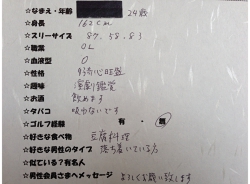 ☆なまえ・年齢 24歳
☆身長 162cm
☆スリーサイズ 87.58.83
☆職業 OL
☆血液型 O
☆性格 好奇心旺盛
☆趣味 演劇鑑賞
☆お酒 飲めます
☆タバコ 吸わないです
☆ゴルフ経験 有・無
☆好きな食べ物 豆腐料理
☆好きな男性のタイプ 落ち着いている方
☆似ている?有名人
☆男性会員さまへメッセージ よろしくお願い致します